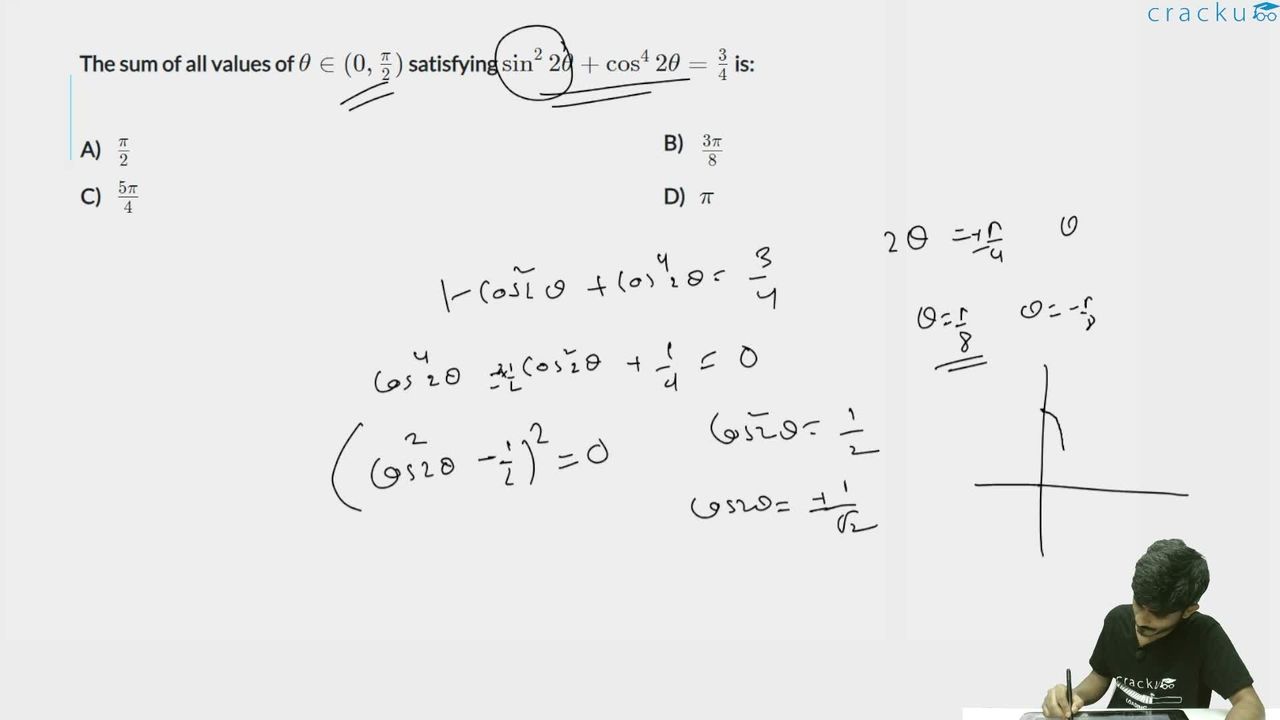 cracku
The sum of all values of θ ∈ (0, π/2) satisfying sin² 2θ + cos⁴ 2θ = 3/4 is:
A) π/2
B) 3π/8
C) 5π/4
D) π
2θ = ±π/4 θ
1 - cos²2θ + cos⁴2θ = 3/4
θ = π/8 θ = -π/8
cos⁴2θ cos²2θ + 1/4 = 0
(cos²2θ - 1/2)² = 0
cos²2θ = 1/2
cos2θ = ±1/√2
cracku